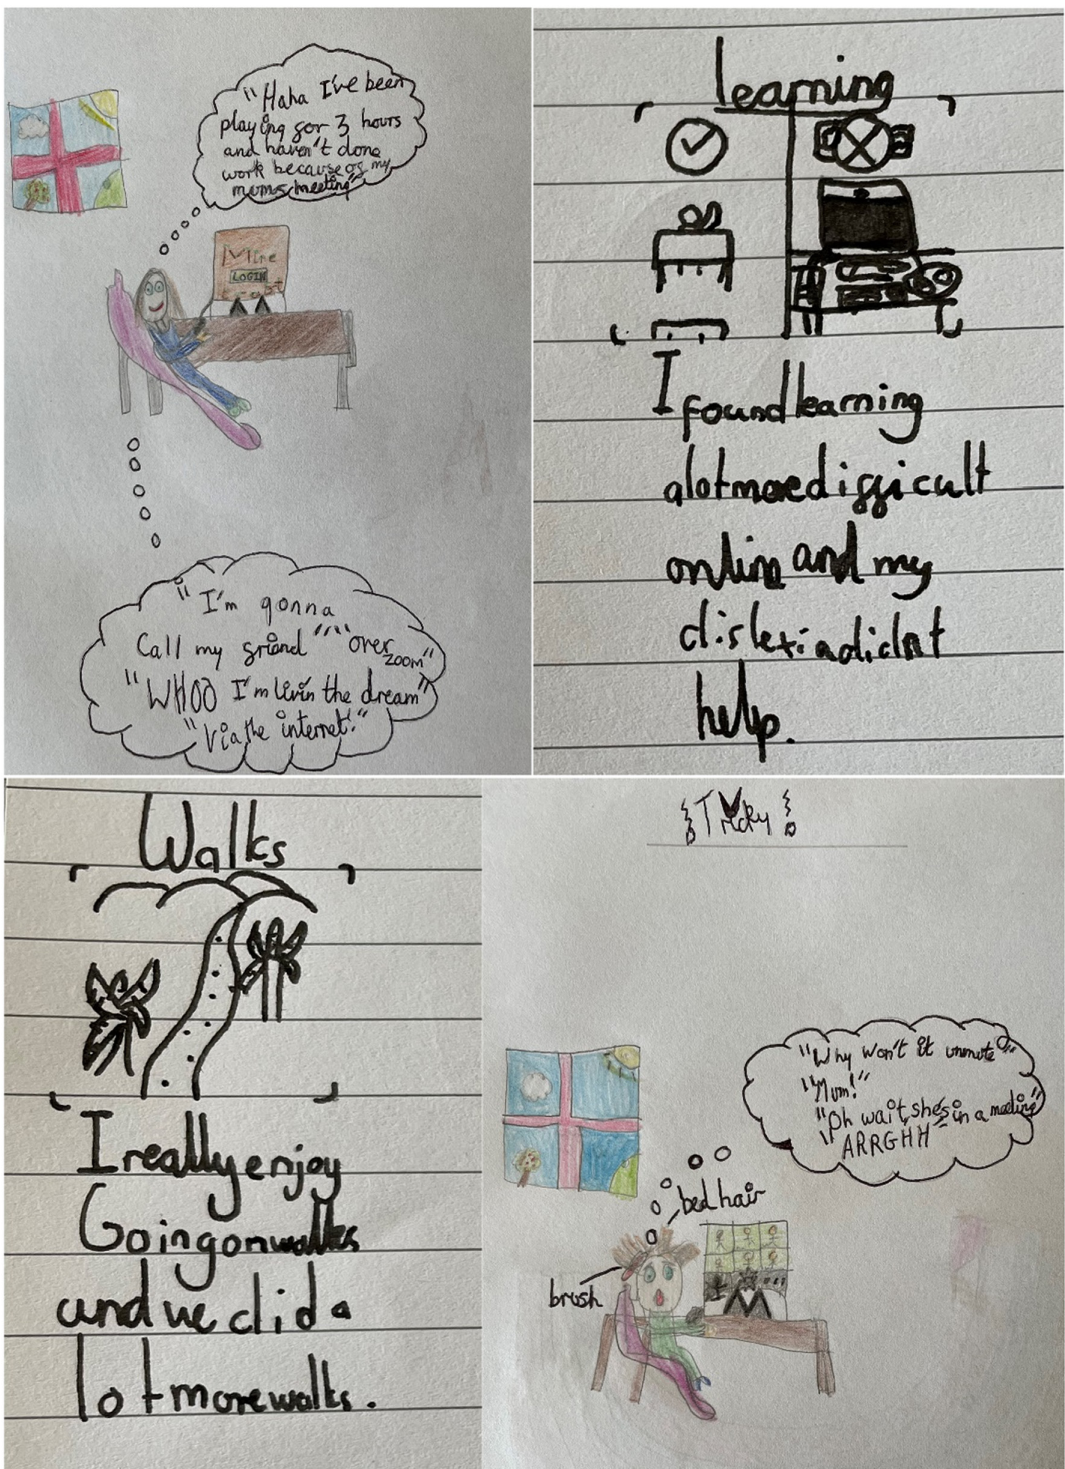 "Haha I've been
playing for 3 hours
and haven't done
work because of my
mums meeting"
Mine
LOGIN
"I'm gonna
Call my friend """over
zoom"
"WHOO I'm livin the dream"
"Via the internet."
learning
I found learning
alot more difficult
onlin and my
dislexia didnt
help.
Walks
I really enjoy
Going on walks
and we did a
lot more walks.
Tricky
"Why won't it unmute"
"Mum!"
"Oh wait, she's in a meeting"
"ARRGHH"
bed hair
brush